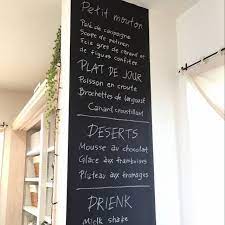 Petit mouton
Paté de campagne
Scope de potimen
Foie gras de canard et
de figues confitée
PLAT DE JOUR
Poisson en croute
Brochettes de langoust
Canard croustillant
DESERTS
Mousse au chocolat
Glace aux framboises
Plateau aux fromages
DRIENK
Mielk shake